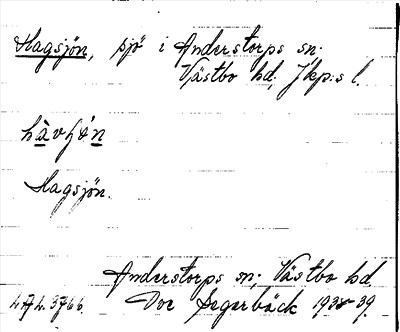 Hagsjön, sjö i Anderstorps sn.
Västbo hd, Jkp:s l.
Hagsjön.
Anderstorps sn; Västbo hd
Segerbäck 1938-39.